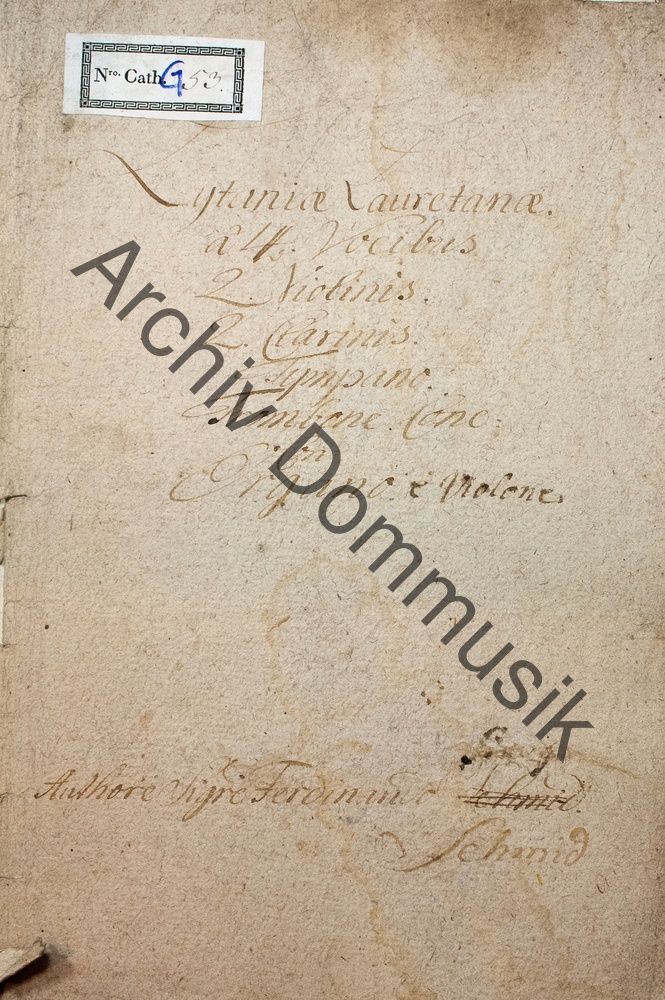 Nro. Cath. G 53.
Lytaniæ Lauretanæ.
â 4. Vocibus
2. Violinis.
2. Clarinis.
Tympano.
Trombone. Conc:
Con
Organo. e Violone.
Archiv Dommusik
Authore Sigre Ferdinando Schmid.
Schmid